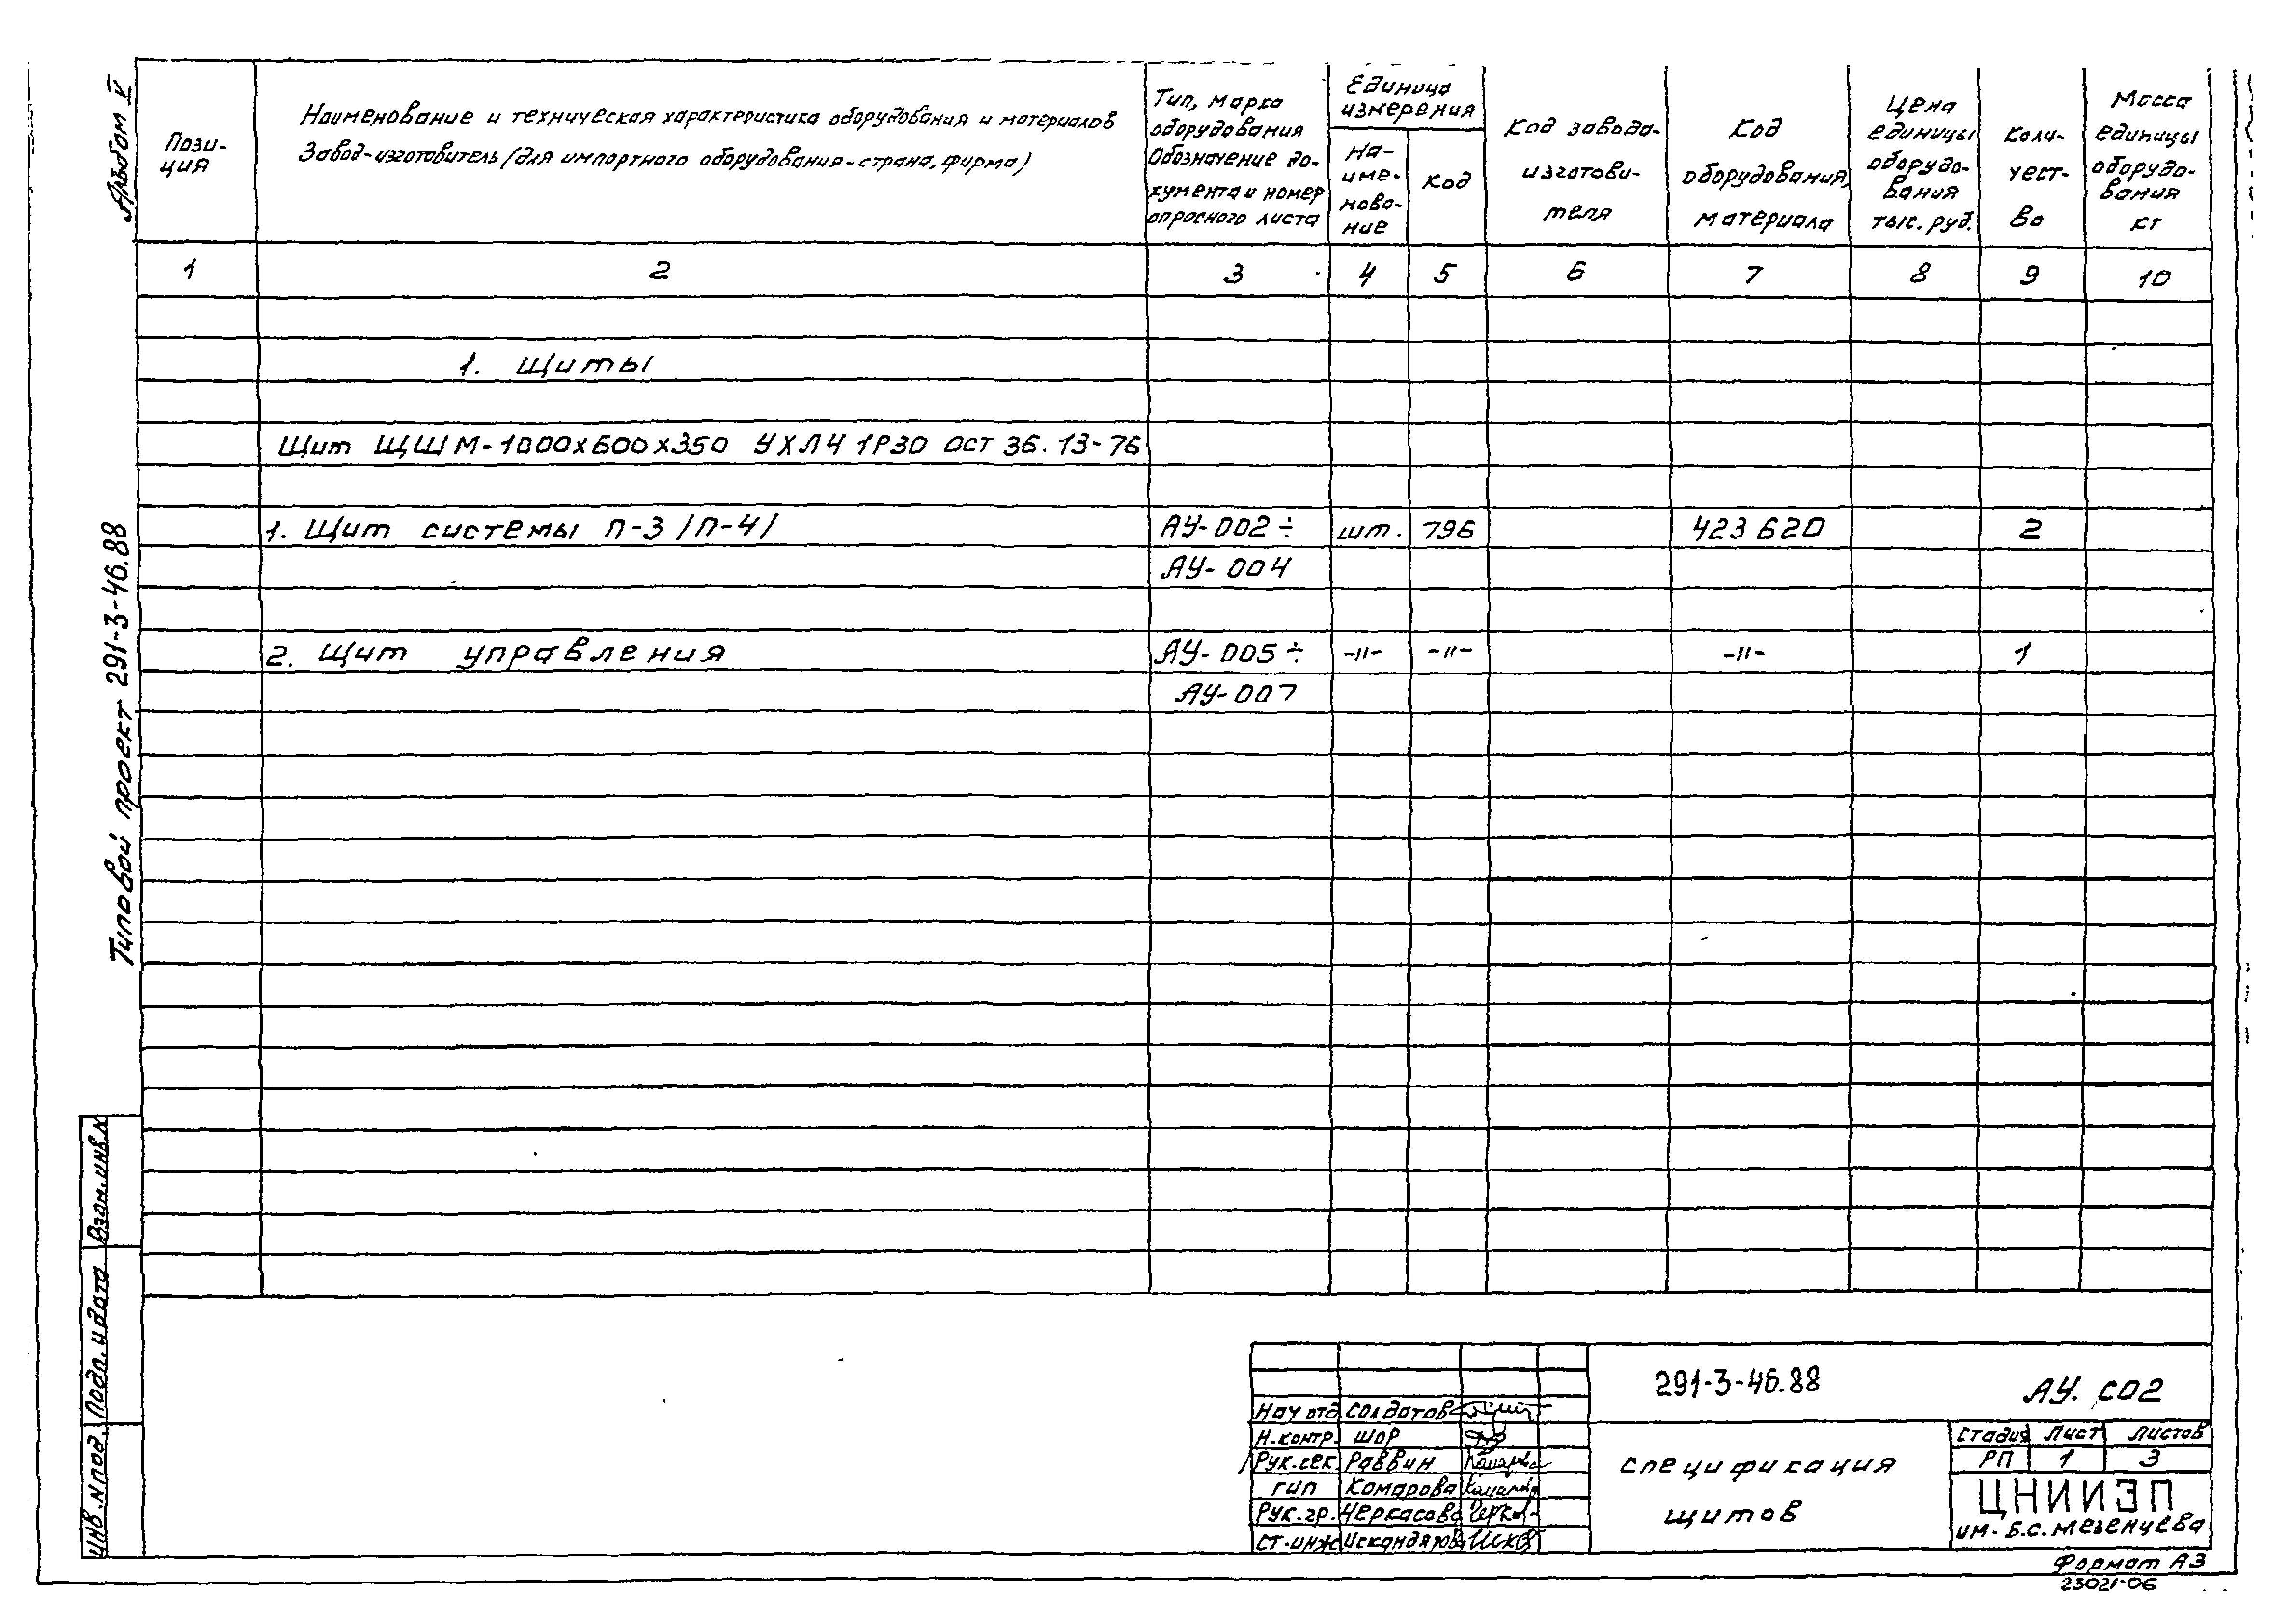 Альбом V
Типовой проект 291-3-46.88
Пози-
ция
Наименование и техническая характеристика оборудования и материалов
Завод-изготовитель (для импортного оборудования-страна, фирма)
Тип, марка
оборудования
Обозначение до-
кумента и номер
опросного листа
Единица
измерения
На-
име-
нова-
ние
Код
Код завода-
изготови-
теля
Код
оборудования,
материала
Цена
единицы
оборудо-
вания
тыс. руб.
Коли-
чест-
во
Масса
единицы
оборудо-
вания
кг
1 2 3 4 5 6 7 8 9 10
1. Щиты
Щит ЩШМ-1000х600х350 УХЛ4 1Р30 ОСТ 36.13-76
1. Щит системы П-3 /П-4/ АУ-002÷ шт. 796 423620 2
АУ-004
2. Щит управления АУ-005÷ -"- -"- -"- 1
АУ-007
Взам. инв. N
Подп. и дата
Инв. N подл.
291-3-46.88 АУ. СО2
Нач отд Солдатов
Н.контр. Шор
Рук.сек. Раввин
ГИП Комарова
Рук.гр. Черкасова
Ст.инж Искандяров
спецификация
щитов
Стадия Лист Листов
РП 1 3
ЦНИИЭП
им. Б.С. Мезенцева
Формат А3
23021-06